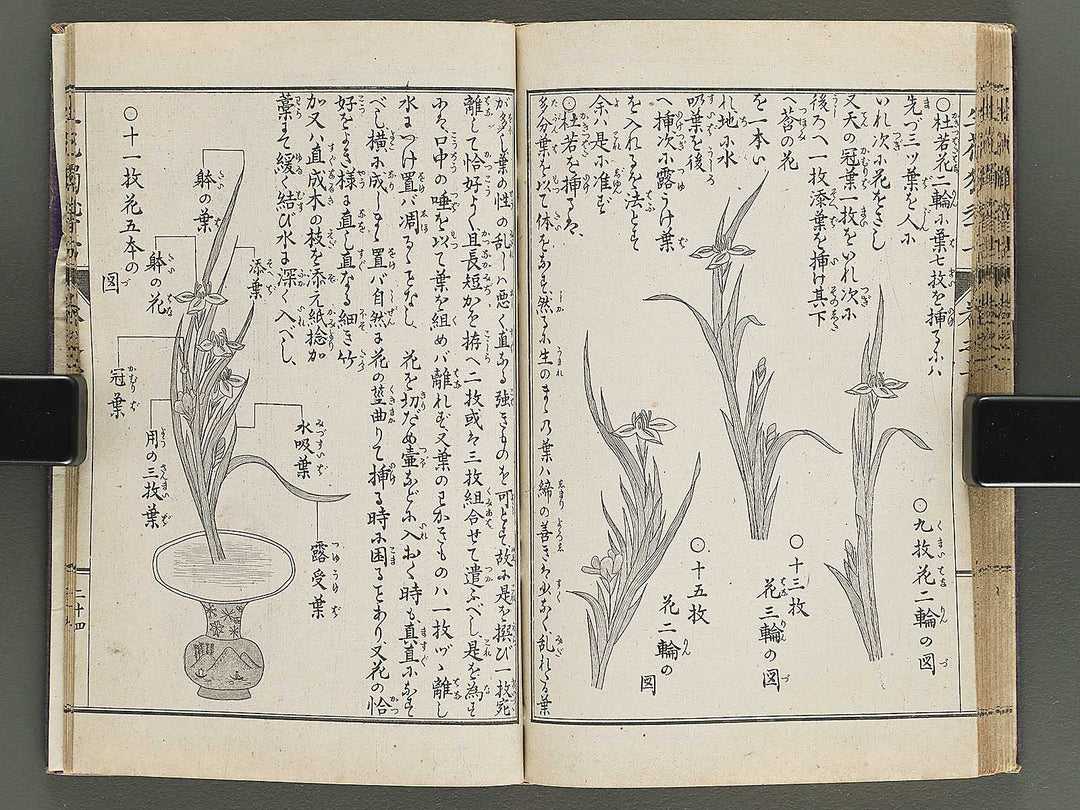 ○杜若花二輪に葉七枚を挿るにハ
先づ三ツ葉を入に
いれ次に花をさし
又天の冠葉一枚をいれ次に
後ろへ一枚添葉を挿け其下
へ莟の花
を一本い
れ地に水
吸葉を後
へ挿次に露うけ葉
を入れるを法とす
余ハ是に准ず
○杜若を挿るは
多分葉を以て体をなす然るに生のまゝ乃葉ハ締の善き少なく乱れたる葉
○九枚花二輪の図
○十三枚
花三輪の図
○十五枚
花二輪の
図
が多し葉の性の乱しハ悪く直なる強きものを可とす故に是を撰び一枚宛
離して恰好よく且長短かを拵へ二枚或は三枚組合せて遣ふべし是を為す
にハ口中の唾を以て葉を組めバ離れず又葉のわかきものハ一枚づゝ離し
水につけ置バ凋るゝことなし 花を切だめ壷などに入おく時も真直になす
べし横に成しまゝ置バ自然に花の茎曲りて挿る時に困ることあり又花の恰
好をよき様に直し直なる細き竹
か又ハ直成木の枝を添元紙捻か
藁まて緩く結び水に深く入べし
○十一枚花五本の
図
躰の葉
躰の花
添葉
冠葉
用の三枚葉
水吸葉
露受葉
二十四